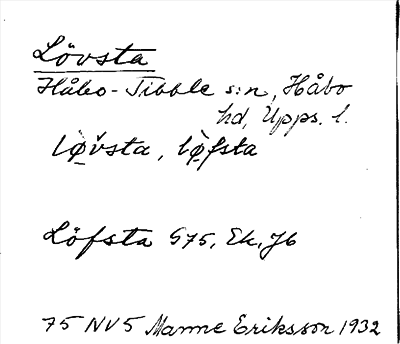 Lövsta
Håbo-Tibble s:n, Håbo
hd, Upps. l.
lø̀vsta, lø̀fsta
Löfsta G75, Ek, Jb
75 NV5 Manne Eriksson 1932